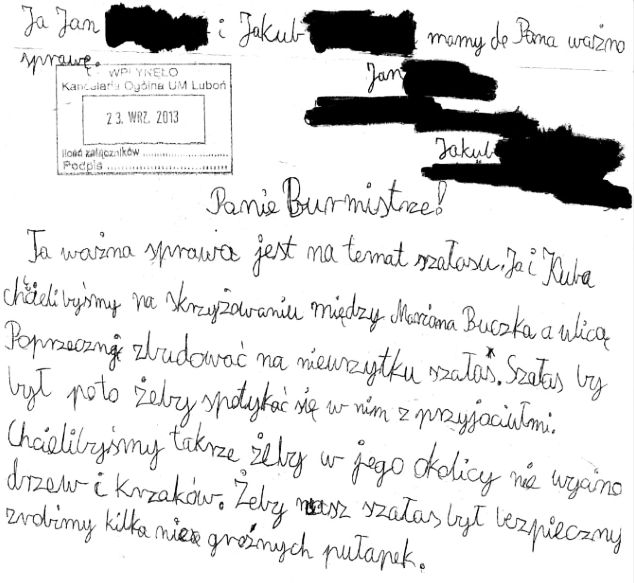 Ja Jan i Jakub mamy do Pana ważno
sprawę.
Jan
WPŁYNĘŁO
Kancelaria Ogólna UM Luboń
23. WRZ. 2013
Ilość załączników
Podpis
Jakub
Panie Burmistrze!
Ta ważna sprawa jest na temat szałasu. Ja i Kuba
chcielibyśmy na skrzyżowaniu między Mariana Buczka a ulicą
Poprzeczną zbudować na nieurzytku szałas. Szałas by
był poto żeby spotykać się w nim z przyjaciułmi.
Chcielibyśmy takrze żeby w jego okolicy nie wycino
drzew i krzaków. Żeby nasz szałas był bezpieczny
zrobimy kilka nie groźnych pułapek.